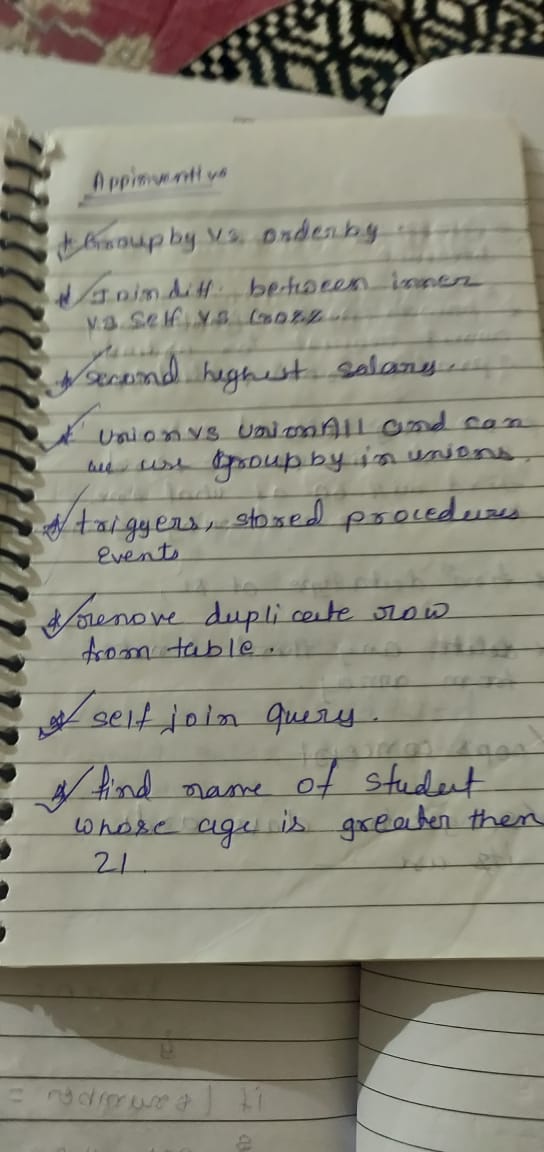 Appinventiv
* Group by vs. order by
* Join diff. between inner
vs self vs cross.
* second highest salary.
* union vs unionAll and can
we use group by in unions.
* triggers, stored procedures
events
* remove duplicate row
from table.
* self join query.
* find name of student
whose age is greater then
21.